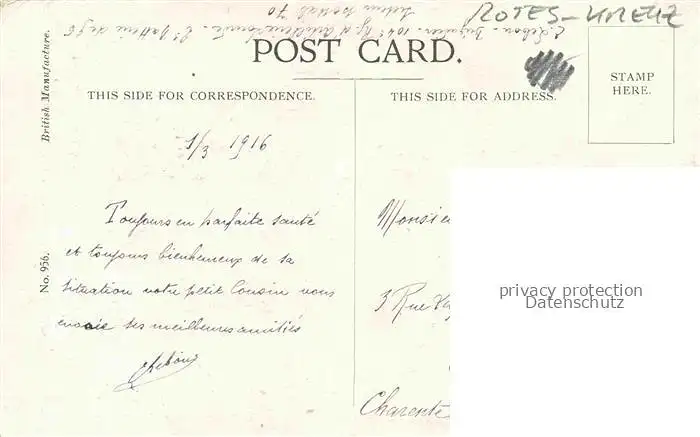 ROTES-KREUZ
POST CARD.
British Manufacture.
THIS SIDE FOR CORRESPONDENCE.
THIS SIDE FOR ADDRESS.
STAMP
HERE.
1/3 1916
Toujours en parfaite santé
et toujours bienheureux de sa
situation votre petit Cousin vous
envoie ses meilleures amitiés
No. 956.
Monsie
3 Rue
Charente
privacy protection
Datenschutz